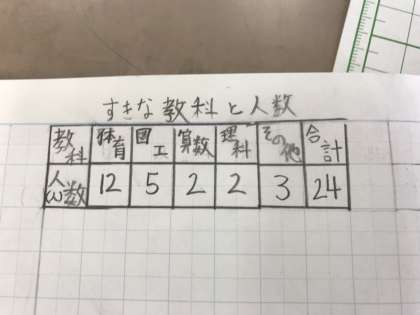 すきな教科と人数
教科 体育 図工 算数 理科 その他 合計
人数(人) 12 5 2 2 3 24